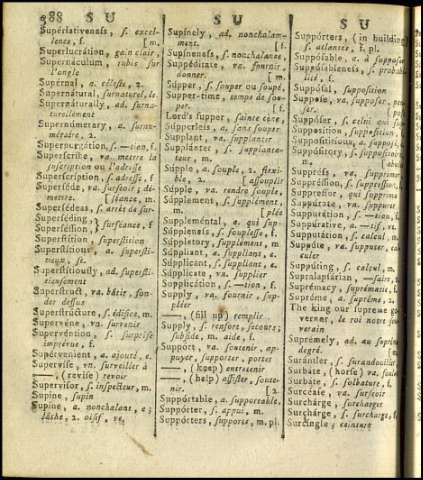 288 S U
Superlativeness, s. excel-
lence, f. [m.
Superlucrátion, gain clair,
Supernáculum, rubis sur
l'ongle
Supérnal, a. céleste, 2.
Supernátural, surnaturel, le
Supernáturally, ad. surna-
turellement
Supernúmerary, a. surnu-
méraire, 2.
Superpurgátion, s. —tion, f.
Superscríbe, va. mettre la
suscription ou l'adresse
Superscríption, s. adresse, f.
Superséde, va. surseoir, dé-
mettre. [stance, m.
Supersédeas, s. arrêt de sur-
Superséding, } surséance, f.
Superséssion, }
Superstítion superstition
Superstítious, a. supersti-
tieux, se.
Superstítiously, ad. supersti-
tieusement
Superstrúct, va. bâtir, fon-
der dessus
Superstrúcture, s. édifice, m.
Supervéne, va. survenir
Supervéntion, s. surprise
imprévue, f.
Supervénient, a. ajouté, e.
Supervíse, vn. surveiller à
——, (revise) revoir
Supervísor, s. inspecteur, m.
Supíne, supin
Supíne, a. nonchalant, e;
lâche, 2. oisif, ve.
S U
Supínely, ad. nonchalam-
ment. [f.
Supíneness, s. nonchalance,
Suppéditate, va. fournir,
donner. [m.
Súpper, s. souper ou soupé,
Supper-time, temps de sou-
per. [f.
Lord's supper, sainte cène,
Súpperless, a. sans souper
Supplánt, va. supplanter
Supplánter, s. supplanta-
teur, m.
Súpple, a. souple, 2. flexi-
ble, 2. [assouplir
Súpple, va. rendre souple,
Súpplement, s. supplément,
m. [plée
Supplemental, a. qui sup-
Súppleness, s. souplesse, f.
Súppletory, supplément, m.
Súppliant, a. suppliant, e.
Súpplicant, s. suppliant, e.
Súpplicate, va. supplier
Supplicátion, s. —tion, f.
Supply, va. fournir, sup-
pléer
——, (fill up) remplir
Supply, s. renfort, secours;
subside, m. aide, f.
Suppórt, va. soutenir, ap-
puyer, supporter, porter
——, (keep) entretenir
——, (help) assister, soute-
nir. [2.
Suppórtable, a. supportable,
Suppórter, s. appui, m.
Suppórters, supports, m. pl.
S U
Suppórters, (in building
s. atlantes, f. pl.
Suppósable, a. à suppos
Suppósableness, s. proba
lité, f.
Suppósal, supposition
Suppóse, va. supposer,
ser
Suppóser, s. celui qui
Supposítion, supposition
Supposititious, a. supposé
Suppósitory, s. suppositoire
m.
Suppréss, va. supprimer
Suppréssion, suppression
Suppréssor, qui supprime
Súppurate, va. suppurer
Suppurátion, s. —tion, f.
Súppurative, a. —tif, ve
Supputátion, s. calcul, m.
Suppúte, va. supputer, cal
culer
Suppúting, s. calcul, m.
Supralapsárian, —saire,
Suprémacy, suprématie, f.
Supréme, a. suprême, 2.
The king our supreme go
verner, le roi notre sou
verain
Suprémely, ad. au suprême
degré.
Surbate, (horse) va. soula
Surbate, s. solbature, f.
Surcéase, va. surseoir
Surchárge, surcharger
Surchárge, s. surcharge, f.
Surcíngle, ceinture